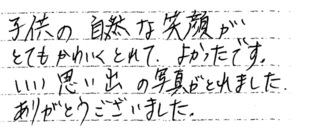 子供の自然な笑顔が
とてもかわいくとれて、よかったです。
いい思い出の写真がとれました。
ありがとうございました。